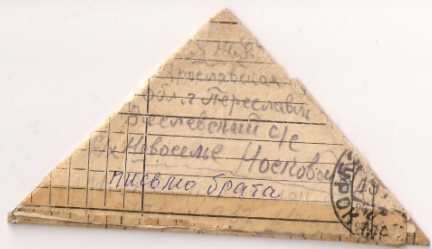 Ярославская
обл. г Переславль
Веслевский с/с
с. Новоселье Носковой
письмо брата